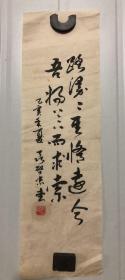 路漫〻其修遠兮
吾将上下而求索
乙亥季夏